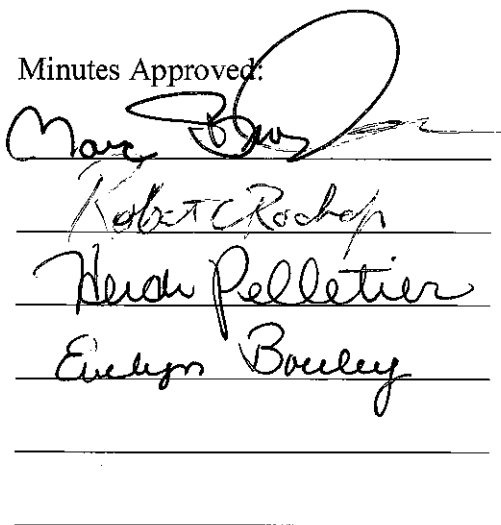 Minutes Approved:
Marc
Robert C
Heidi Pelletier
Evelyn Bouley